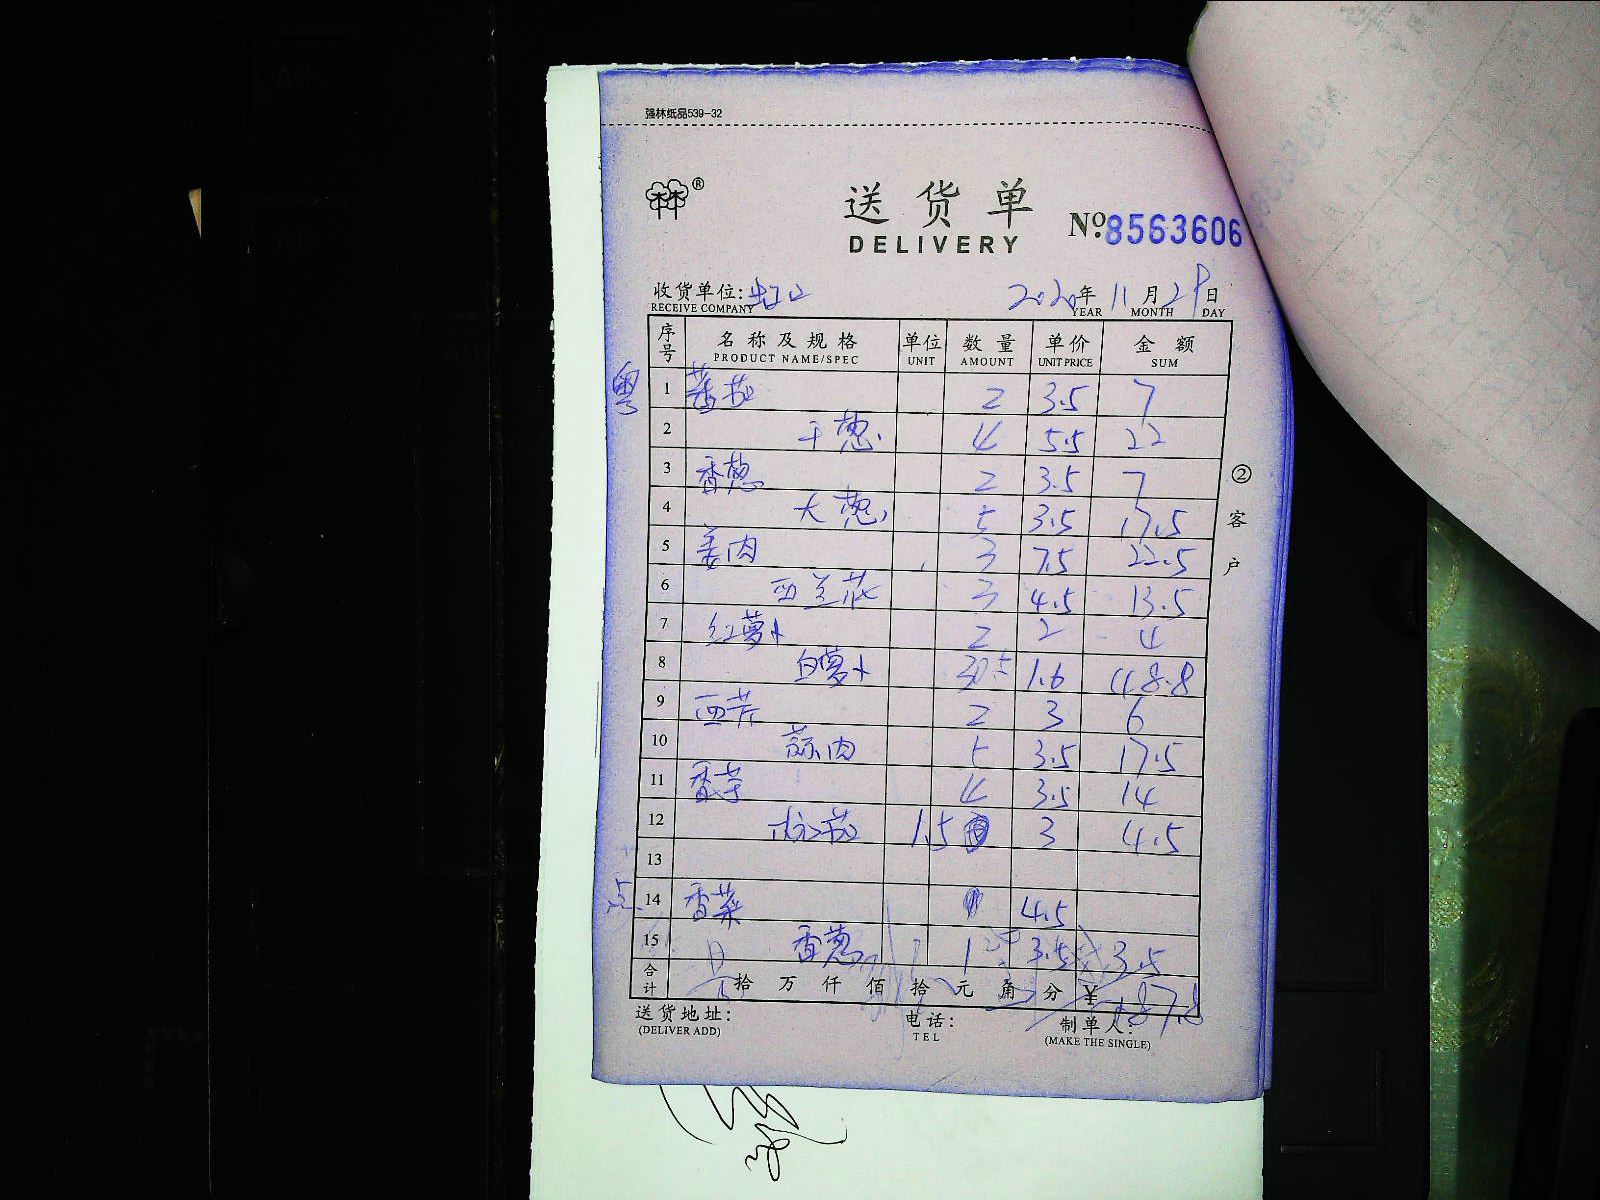 强林纸品539-32
林林®
送货单 Nº8563606
DELIVERY
收货单位: 2020年11月29日
RECEIVE COMPANY YEAR MONTH DAY
序号 名称及规格 单位 数量 单价 金额
PRODUCT NAME/SPEC UNIT AMOUNT UNIT PRICE SUM
粤 1 蕃茄 2 3.5 7
2 干葱 4 5.5 22
3 香葱 2 3.5 7
4 大葱 5 3.5 17.5
5 姜肉 3 7.5 22.5
6 西兰花 3 4.5 13.5
7 红萝卜 2 2 4
8 白萝卜 30.5 1.6 48.8
9 西芹 2 3 6
10 蒜肉 5 3.5 17.5
11 香芋 4 3.5 14
12 1.5 3 4.5
13
点 14 香菜 4.5
15 香葱 1 3.5 3.5
合计 拾 万 仟 佰 拾 元 角 分 ¥ 187.8
送货地址: 电话: 制单人:
(DELIVER ADD) TEL (MAKE THE SINGLE)
②客户